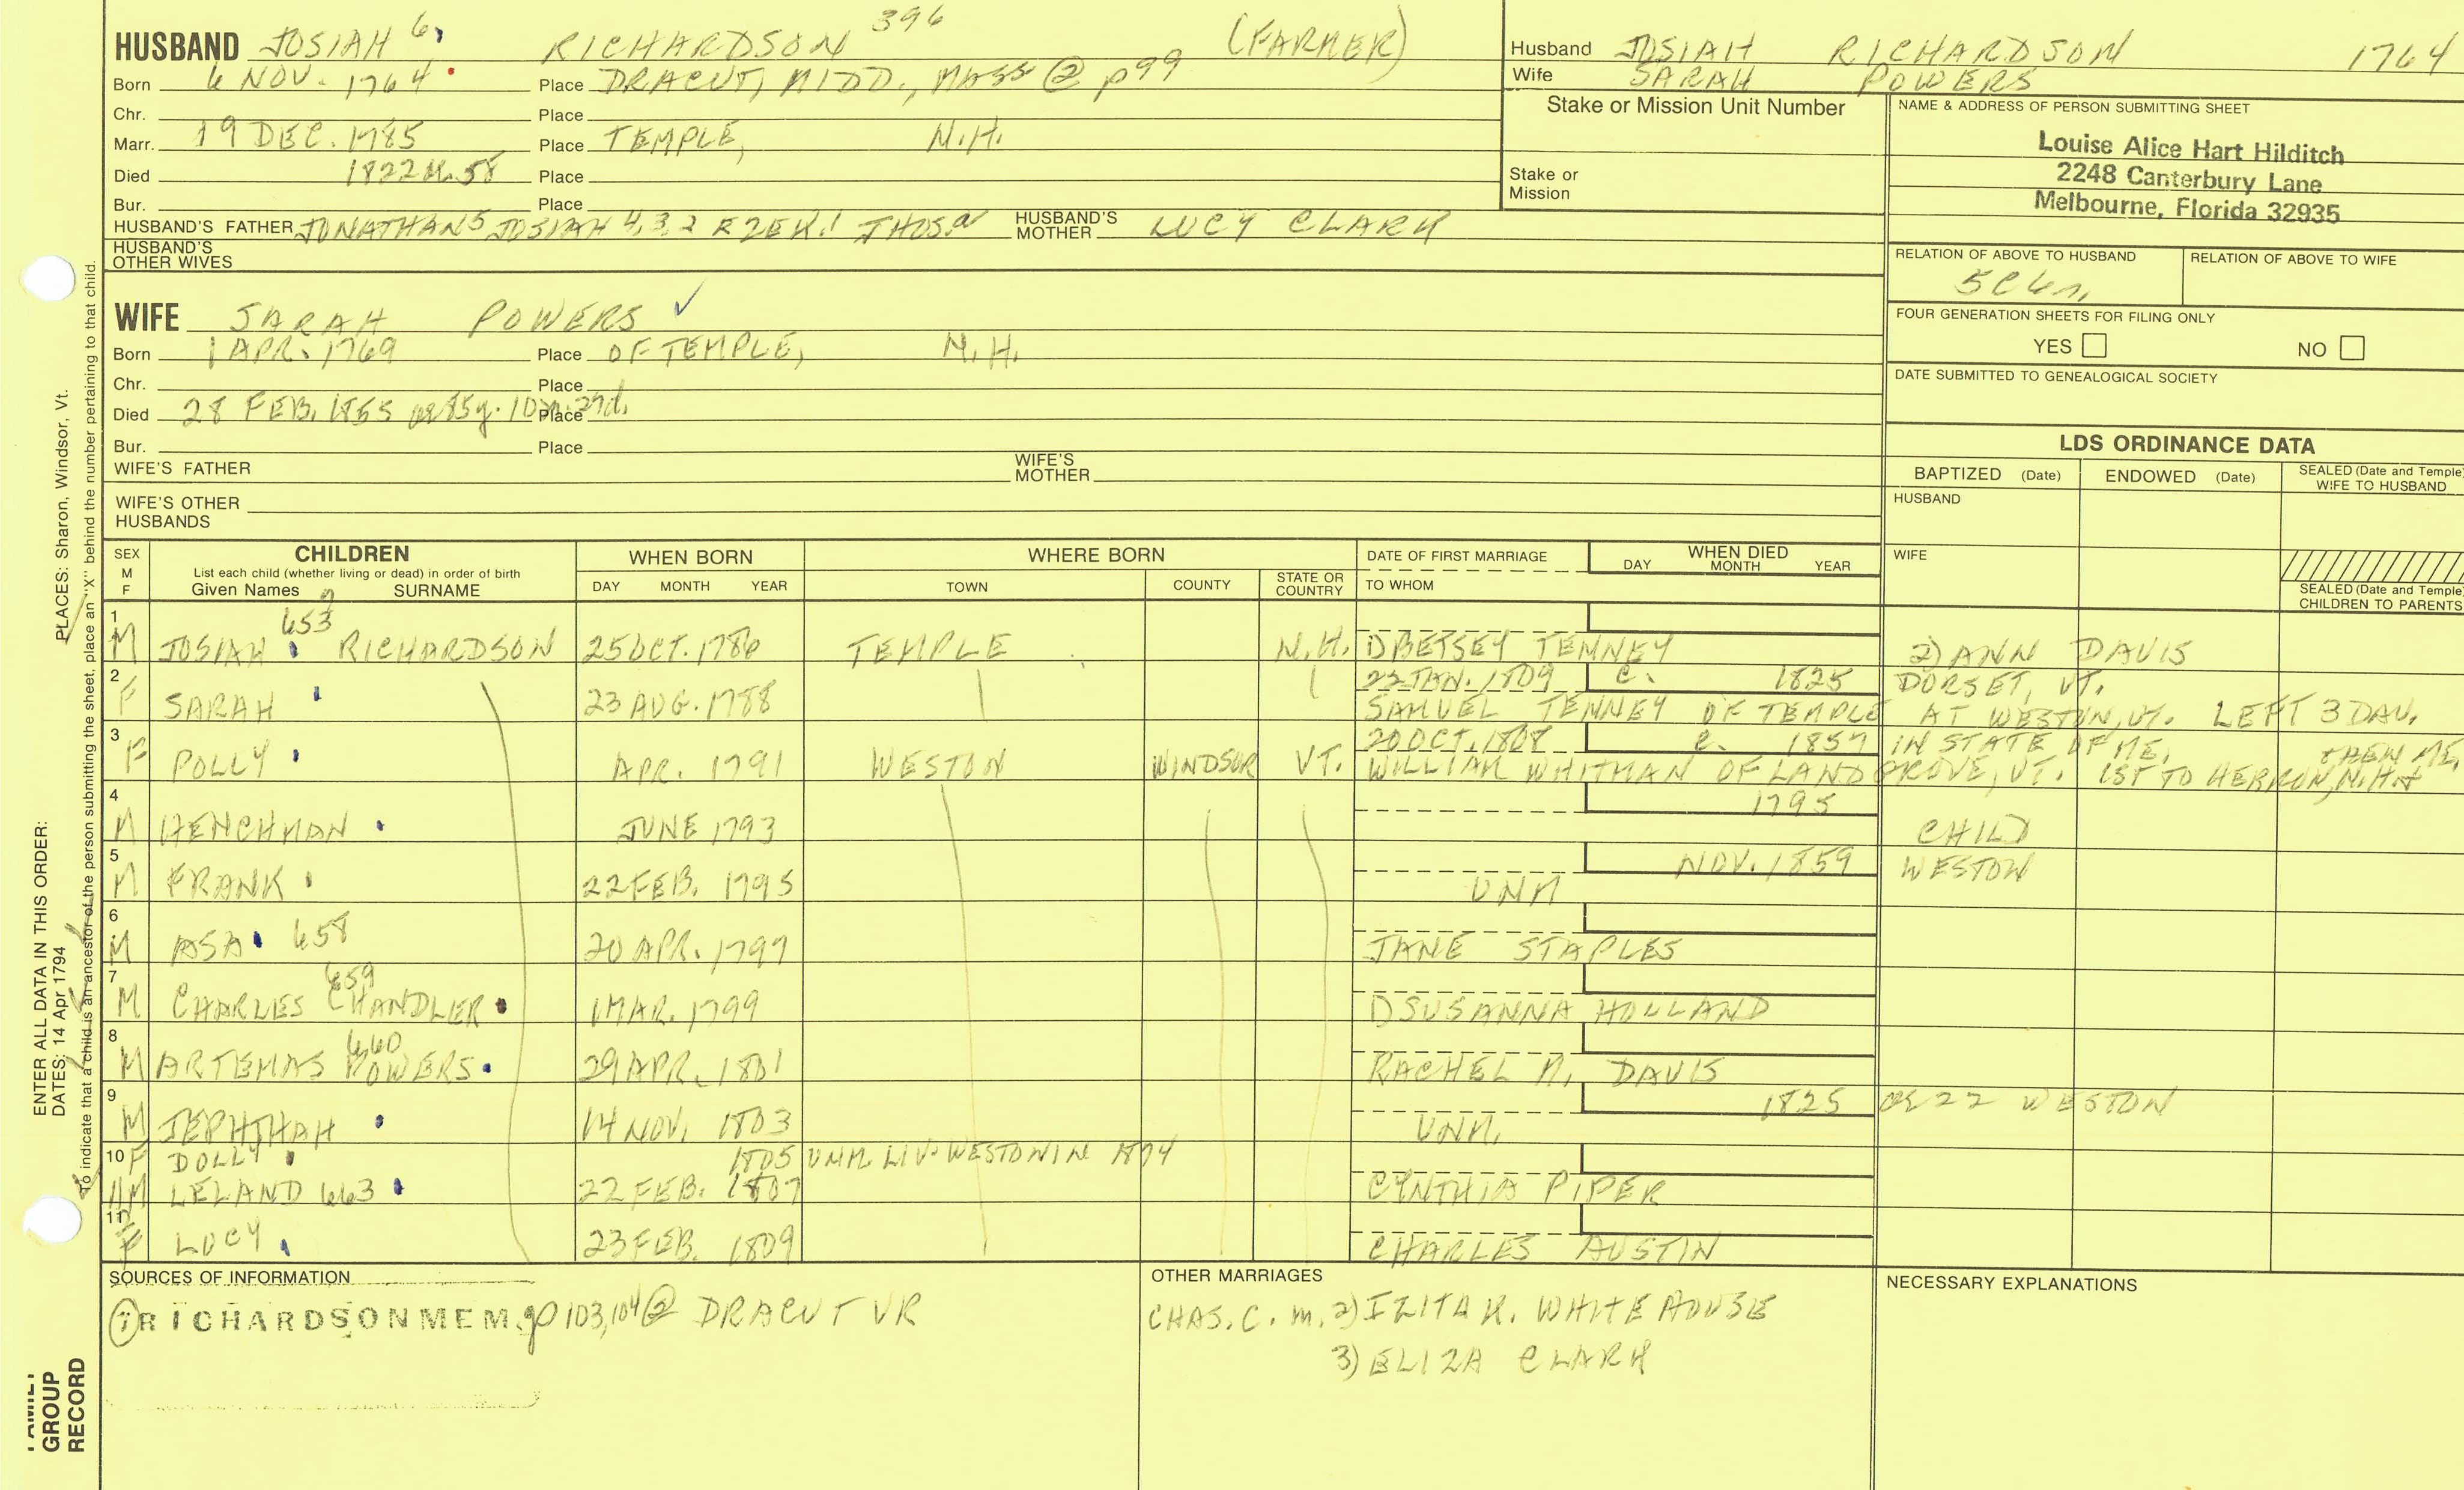 HUSBAND JOSIAH 6. RICHARDSON 396 (FARMER)
Born 6 NOV. 1764 Place DRACUT, MIDD., MASS @ p99
Chr. Place
Marr. 19 DEC. 1785 Place TEMPLE, N.H.
Died 1822 Æ. 58 Place
Bur. Place
HUSBAND'S FATHER JONATHAN5 JOSIAH 4,3,2 EZEK.1 THOS.a HUSBAND'S MOTHER LUCY CLARK
HUSBAND'S OTHER WIVES
Husband JOSIAH RICHARDSON 1764
Wife SARAH POWERS
Stake or Mission Unit Number
Stake or Mission
NAME & ADDRESS OF PERSON SUBMITTING SHEET
Louise Alice Hart Hilditch
2248 Canterbury Lane
Melbourne, Florida 32935
RELATION OF ABOVE TO HUSBAND RELATION OF ABOVE TO WIFE
5C6r,
FOUR GENERATION SHEETS FOR FILING ONLY
YES NO
DATE SUBMITTED TO GENEALOGICAL SOCIETY
WIFE SARAH POWERS ✓
Born 1 APR. 1769 Place OF TEMPLE, N.H.
Chr. Place
Died 28 FEB. 1855 æ 85y. 10m. 27d. Place
Bur. Place
WIFE'S FATHER WIFE'S MOTHER
WIFE'S OTHER HUSBANDS
LDS ORDINANCE DATA
BAPTIZED (Date) ENDOWED (Date) SEALED (Date and Temple) WIFE TO HUSBAND
HUSBAND
WIFE
SEALED (Date and Temple) CHILDREN TO PARENTS
SEX M F CHILDREN WHEN BORN WHERE BORN DATE OF FIRST MARRIAGE WHEN DIED
List each child (whether living or dead) in order of birth
Given Names SURNAME DAY MONTH YEAR TOWN COUNTY STATE OR COUNTRY TO WHOM DAY MONTH YEAR
1 M JOSIAH 653 RICHARDSON 25 OCT. 1786 TEMPLE N.H. 1) BETSEY TENNEY 2) ANN DAVIS
2 23 JAN. 1809 C. 1825 DORSET, VT.
F SARAH 23 AUG. 1788 SAMUEL TENNEY OF TEMPLE AT WESTON, VT. LEFT 3 DAU.
3 20 OCT. 1808 C. 1857 IN STATE OF ME.
F POLLY APR. 1791 WESTON WINDSOR VT. WILLIAM WHITMAN OF LANDGROVE, VT. 1ST TO HERRON, N.H. THEN ME.
4 1795
M HENCHMAN JUNE 1793 CHILD
5 NOV. 1859 WESTON
M FRANK 22 FEB. 1795 UNM
6 M ASA 658 20 APR. 1797 JANE STAPLES
7 M CHARLES CHANDLER 659 1 MAR. 1799 1) SUSANNA HOLLAND
8 M ARTEMAS POWERS 660 29 APR. 1801 RACHEL M. DAVIS
9 1825 Æ 22 WESTON
M JEPHTHAH 14 NOV. 1803 UNM.
10 F DOLLY 1805 UNM. LIV. WESTON IN 1874
11 M LELAND 663 22 FEB. 1807 CYNTHIA PIPER
11 F LUCY 23 FEB. 1809 CHARLES AUSTIN
SOURCES OF INFORMATION
① RICHARDSON MEM. p 103, 104 ② DRACUT VR
OTHER MARRIAGES
CHAS. C. m. 2) IZITA K. WHITEHOUSE
3) ELIZA CLARK
NECESSARY EXPLANATIONS
FAMILY GROUP RECORD
ENTER ALL DATA IN THIS ORDER:
DATES: 14 Apr 1794 PLACES: Sharon, Windsor, Vt.
To indicate that a child is an ancestor of the person submitting the sheet, place an "X" behind the number pertaining to that child.